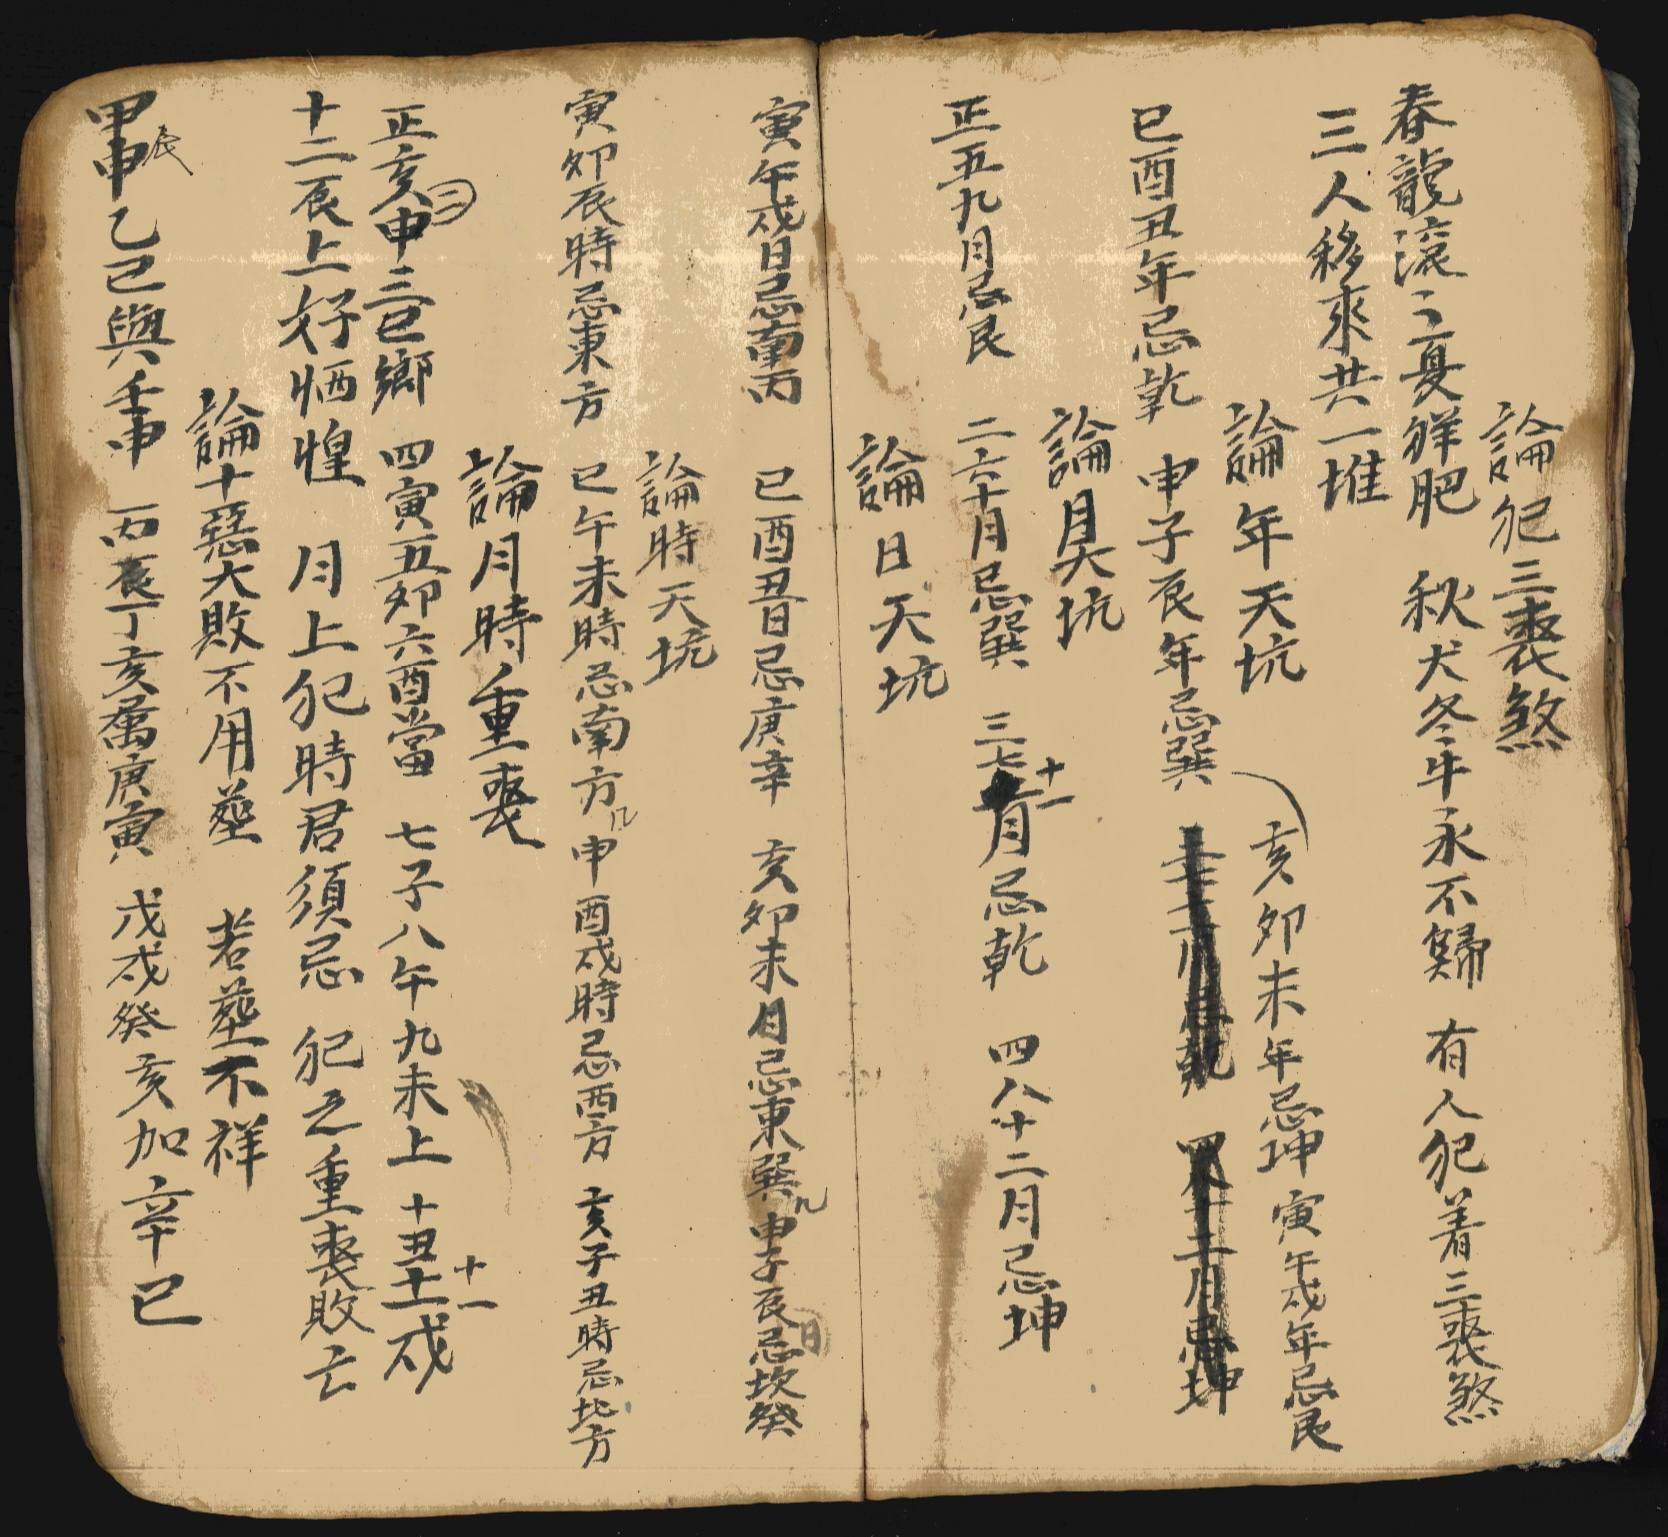 論犯三喪煞
春龍滾〻夏鮮肥 秋犬冬牛永不歸 有人犯着三喪煞
三人移來共一堆
論年天坑
巳酉丑年忌乾 申子辰年忌巽 亥卯未年忌坤 寅午戌年忌艮
論月天坑
正五九月忌艮 二六十月忌巽 三七十一月忌乾 四八十二月忌坤
論日天坑
寅午戌日忌南丙 巳酉丑日忌庚辛 亥卯未月忌東巽 申子辰日忌坎癸
論時天坑
寅卯辰時忌東方 巳午未時忌南方 申酉戌時忌西方 亥子丑時忌北方
論月時重喪
正亥二申三巳鄉 四寅五卯六酉當 七子八午九未上 十丑十一戌
十二辰上好恓惶 月上犯時君須忌 犯之重喪敗亡
論十惡大敗不用葬 若葬不祥
甲辰乙巳與壬申 丙辰丁亥 庚寅 戊戌癸亥加辛巳